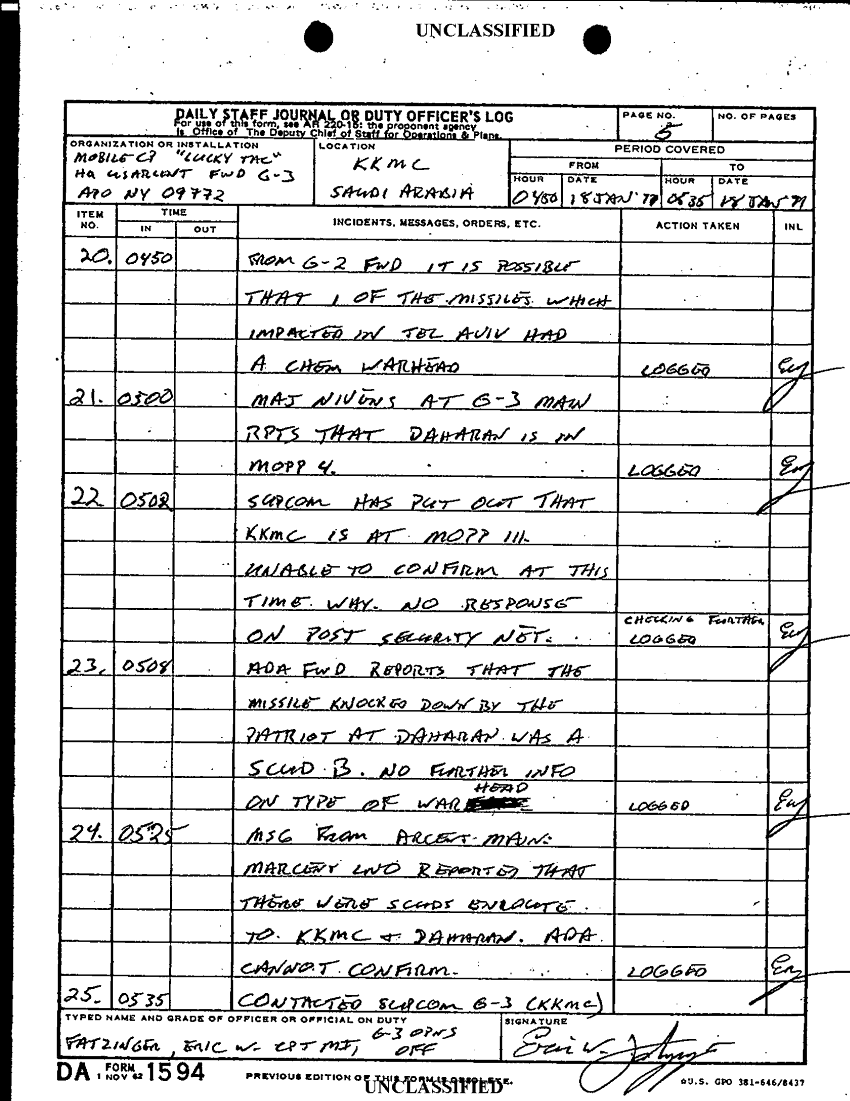 UNCLASSIFIED
DAILY STAFF JOURNAL OR DUTY OFFICER'S LOG
For use of this form, see AR 220-15; the proponent agency
is Office of The Deputy Chief of Staff for Operations & Plans.
PAGE NO.
5
NO. OF PAGES
ORGANIZATION OR INSTALLATION
MOBILE CP "LUCKY TAC"
HQ USARCENT FWD G-3
APO NY 09772
LOCATION
KKMC
SAUDI ARABIA
PERIOD COVERED
FROM
TO
HOUR DATE HOUR DATE
0450 18 JAN 0535 18 JAN 91
ITEM NO.
TIME
IN OUT
INCIDENTS, MESSAGES, ORDERS, ETC.
ACTION TAKEN
INL
20. 0450 FROM G-2 FWD IT IS POSSIBLE
THAT 1 OF THE MISSILES WHICH
IMPACTED IN TEL AVIV HAD
A CHEM WARHEAD LOGGED
21. 0500 MAJ NIVENS AT G-3 MAIN
RPTS THAT DAHARAN IS IN
MOPP 4. LOGGED
22 0502 SUPCOM HAS PUT OUT THAT
KKMC IS AT MOPP III.
UNABLE TO CONFIRM AT THIS
TIME. WHY. NO RESPONSE
ON POST SECURITY NET. CHECKING FURTHER
LOGGED
23. 0508 ADA FWD REPORTS THAT THE
MISSILE KNOCKED DOWN BY THE
PATRIOT AT DAHARAN WAS A
SCUD B. NO FURTHER INFO
ON TYPE OF WARHEAD LOGGED
24. 0525 MSG FROM ARCENT MAIN:
MARCENT LNO REPORTED THAT
THERE WERE SCUDS ENROUTE
TO KKMC + DAHARAN. ADA
CANNOT CONFIRM. LOGGED
25. 0535 CONTACTED SUPCOM G-3 (KKMC)
TYPED NAME AND GRADE OF OFFICER OR OFFICIAL ON DUTY
FATZINGER, ERIC W. CPT MI, G-3 OPNS
OFF
SIGNATURE
Eric W.
DA FORM 1 NOV 62 1594
PREVIOUS EDITION OF THIS FORM IS OBSOLETE.
UNCLASSIFIED
U.S. GPO 381-646/8437